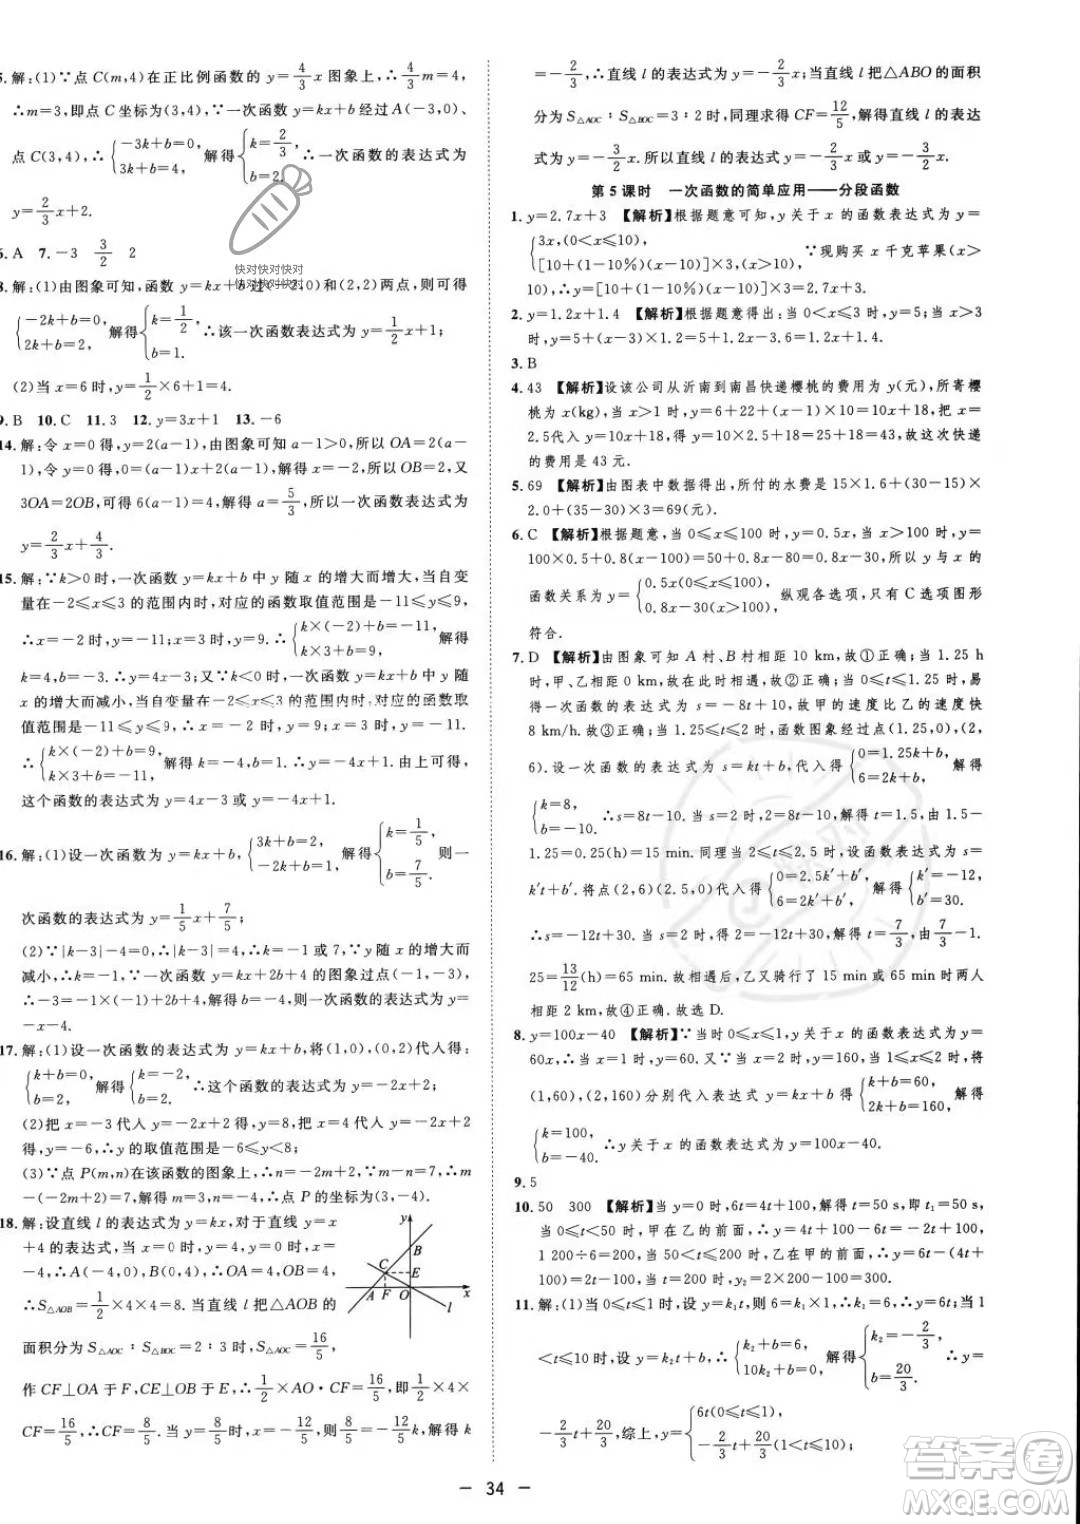 5.解:(1)∵点C(m,4)在正比例函数的y=4/3x图象上,∴4/3m=4,
∴m=3,即点C坐标为(3,4),∵一次函数y=kx+b经过A(-3,0)、
点C(3,4),∴{-3k+b=0, 3k+b=4, 解得{k=2/3, b=2. ∴一次函数的表达式为
y=2/3x+2.
6. A 7. -3 3/2 2
8.解:(1)由图象可知,函数y=kx+b过(-2,0)和(2,2)两点,则可得
{-2k+b=0, 2k+b=2, 解得{k=1/2, b=1. ∴该一次函数表达式为y=1/2x+1;
(2)当x=6时,y=1/2×6+1=4.
9. B 10. C 11. 3 12. y=3x+1 13. -6
14.解:令x=0得,y=2(a-1),由图象可知a-1>0,所以OA=2(a-
1),令y=0得,0=-2x+2(a-1),解得x=a-1,所以OB=2,又
3OA=2OB,可得6(a-1)=4,解得a=5/3,所以一次函数表达式为
y=2/3x+4/3.
15.解:∵k>0时,一次函数y=kx+b中y随x的增大而增大,当自变
量在-2≤x≤3的范围内时,对应的函数取值范围是-11≤y≤9,
∴x=-2时,y=-11;x=3时,y=9.∴{k×(-2)+b=-11, k×3+b=9, 解得
k=4,b=-3,∴y=4x-3.当k<0时,一次函数y=kx+b中y随
x的增大而减小,当自变量在-2≤x≤3的范围内时,对应的函数取
值范围是-11≤y≤9,∴x=-2时,y=9;x=3时,y=-11.
∴{k×(-2)+b=9, k×3+b=-11. 解得k=-4,b=1.∴y=-4x+1.由上可得,
这个函数的表达式为y=4x-3或y=-4x+1.
16.解:(1)设一次函数为y=kx+b,{3k+b=2, -2k+b=1, 解得{k=1/5, b=7/5. 则一
次函数的表达式为y=1/5x+7/5;
(2)∵|k-3|-4=0,∴k=-1或7,∵函数y随x的增大而
减小,∴k<0,∴k=-1,∵函数的图象过点(-1,-3),
∴-3=-(-1)+2b+4,解得b=-4,则一次函数的表达式为y=
-x-4.
17.解:(1)设一次函数的表达式为y=kx+b,将(1,0),(0,2)代入得:
{k+b=0, b=2, 解得{k=-2, b=2, ∴这个函数的表达式为y=-2x+2;
(2)把x=-3代入y=-2x+2得,y=8,把x=4代入y=-2x+2
得,y=-6,∴y的取值范围是-6≤y<8;
(3)∵点P(m,n)在该函数的图象上,∴n=-2m+2,∵m-n=4,
∴m-(-2m+2)=4,解得m=2,n=-2,∴点P的坐标为(2,-2).
18.解:设直线l的表达式为y=kx,对于直线y=x
+4的表达式,当x=0时,y=4,y=0时,x=
-4,∴A(-4,0),B(0,4),∴OA=4,OB=4,
∴S△AOB=1/2×4×4=8.当直线l把△AOB的
面积分为S△AOC∶S△BOC=2∶3时,S△AOC=16/5,
y B C E A F O x l
作CF⊥OA于F,CE⊥OB于E,∴1/2×AO·CF=16/5,即1/2×4×
CF=16/5,∴CF=8/5.当y=8/5时,x=-12/5,则8/5=-12/5k,解得k
=-2/3,∴直线l的表达式为y=-2/3x;当直线l把△ABO的面积
分为S△AOC∶S△BOC=3∶2时,同理求得CF=12/5,解得直线l的表达
式为y=-3/2x.所以直线l的表达式为y=-2/3x或y=-3/2x.
第5课时 一次函数的简单应用——分段函数
1. y=2.7x+3 【解析】根据题意可知,y关于x的函数表达式为y=
{3x,(0<x≤10), [10+(1-10%)(x-10)]×3,(x>10), ∵现购买x千克苹果(x>
10),∴y=[10+(1-10%)(x-10)]×3=2.7x+3.
2. y=1.2x+1.4 【解析】根据题意得出:当0<x≤3时,y=5;当x>3
时,y=5+(x-3)×1.2=5+1.2x-3×1.2=1.2x+1.4.
3. B
4. 43 【解析】设该公司从沂南到南昌快递樱桃的费用为y(元),所寄樱
桃为x(kg),当x>1时,y=6+22+(x-1)×10=10x+18,把x=
2.5代入y=10x+18得y=10×2.5+18=43,故这次快递
的费用是43元.
5. 69 【解析】由图表中数据得出,所付的水费是15×1.6+(30-15)×
2.0+(35-30)×3=69(元).
6. C 【解析】根据题意,当0≤x≤100时,y=0.5x,当x>100时,y=
100×0.5+0.8(x-100)=50+0.8x-80=0.8x-30,所以y与x的
函数关系为y={0.5x(0≤x≤100), 0.8x-30(x>100), 纵观各选项,只有C选项图形
符合.
7. D 【解析】由图象可知A村、B村相距10 km,故①正确;当1.25 h
时,甲、乙相距为0 km,故在此时相遇,故②正确;当0≤t≤1.25时,易
得一次函数的表达式为s=-8t+10,故甲的速度比乙的速度快
8 km/h.故③正确;当1.25≤t≤2时,函数图象经过点(1.25,0),(2,
6).设一次函数的表达式为s=kt+b,代入得{0=1.25k+b, 6=2k+b, 解得
{k=8, b=-10. ∴s=8t-10.当s=2时,2=8t-10,解得t=1.5,由1.5-
1.25=0.25(h)=15 min.同理当2≤t≤2.5时,设函数表达式为s=
k′t+b′.将点(2,6)(2.5,0)代入得{0=2.5k′+b′, 6=2k′+b′, 解得{k′=-12, b′=30.
∴s=-12t+30,当s=2时,得2=-12t+30,解得t=7/3,由7/3-1.
25=13/12(h)=65 min.故相遇后,乙又骑行了15 min或65 min时两人
相距2 km,故④正确.故选D.
8. y=100x-40 【解析】∵当时0≤x≤1,y关于x的函数表达式为y=
60x,∴当x=1时,y=60.又∵当x=2时,y=160,当1≤x≤2时,将
(1,60),(2,160)分别代入表达式y=kx+b得,{k+b=60, 2k+b=160, 解得
{k=100, b=-40. ∴y关于x的函数表达式为y=100x-40.
9. 5
10. 50 300 【解析】当y=0时,6t=4t+100,解得t=50 s,t₁=50 s,
当0≤t<50时,甲在乙的前面,∴y=4t+100-6t=-2t+100,
1 200÷6=200,当50<t≤200时,乙在甲的前面,∴y=6t-(4t+
100)=2t-100,当t=200时,y₂=2×200-100=300.
11.解:(1)当0≤t≤1时,设y=k₁t,则6=k₁×1,∴k₁=6,∴y=6t;当1
<t≤10时,设y=k₂t+b,∴{k₂+b=6, 10k₂+b=0, 解得{k₂=-2/3, b=20/3. ∴y=
-2/3t+20/3,综上,y={6t(0≤t≤1), -2/3t+20/3(1<t≤10);
— 34 —
快对快对快对
快对快对快对
答案圈
MXQE.COM